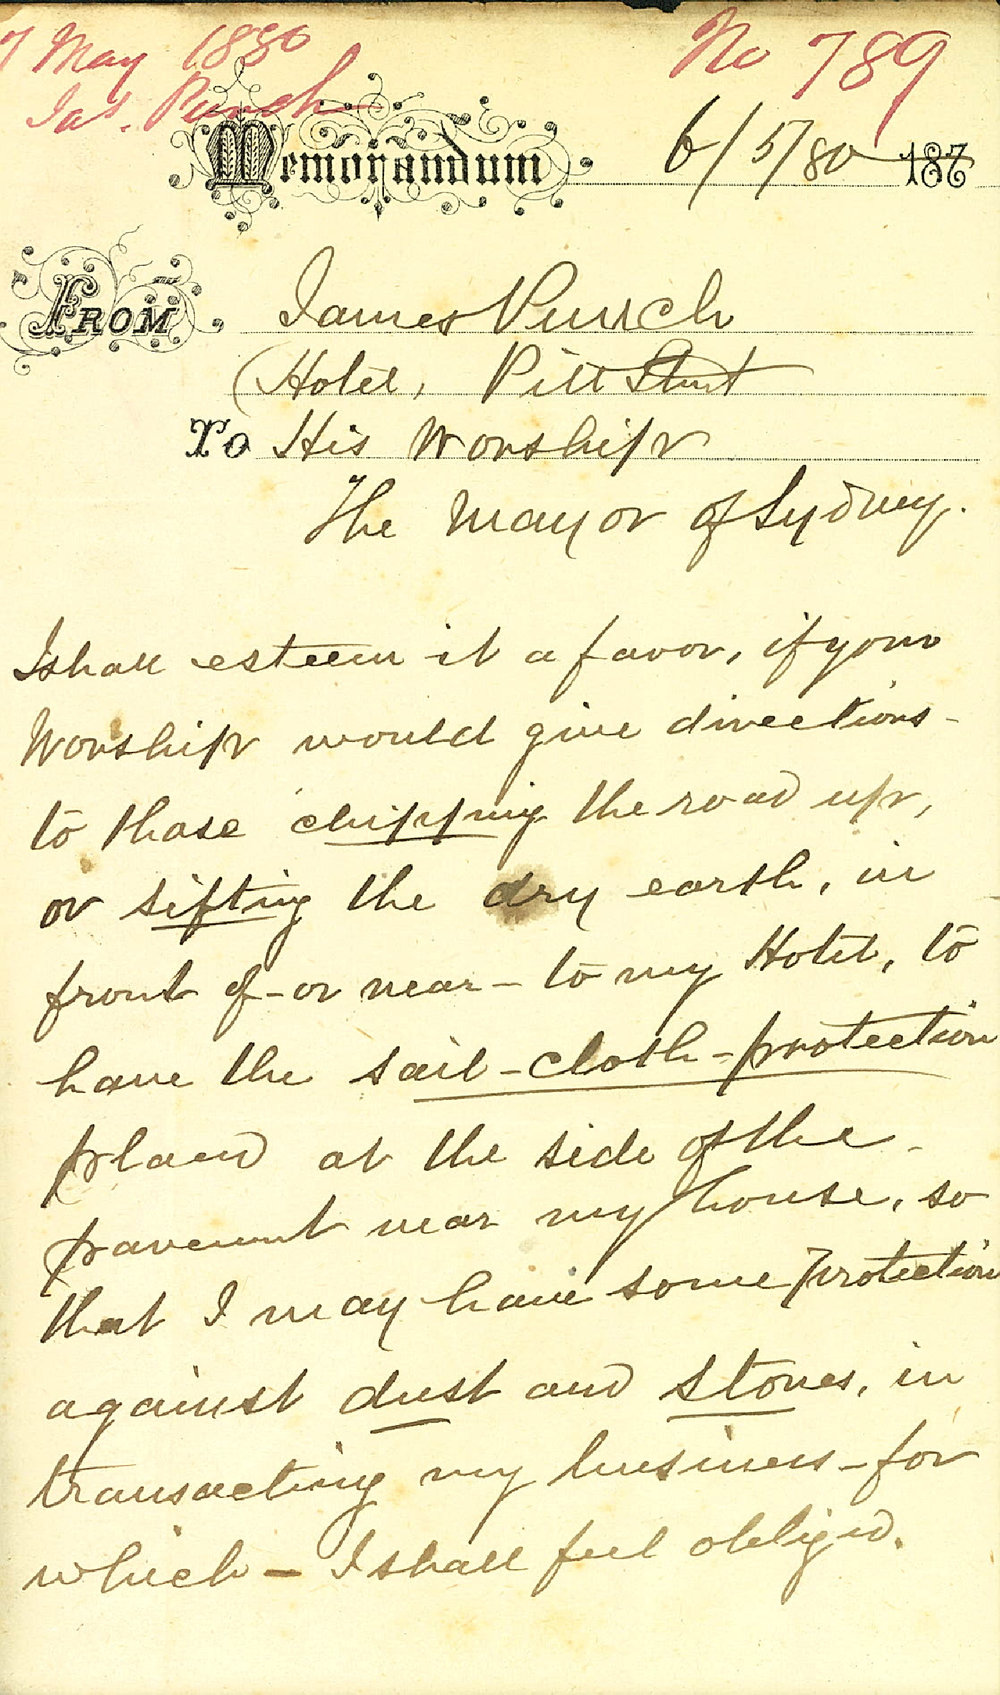 7 May 1880
No 789
Jas. Punch
Memorandum 6/5/80 187
From James Punch
Hotel, Pitt Street
To His Worship
The Mayor of Sydney.
I shall esteem it a favor, if your
Worship would give directions -
to those chipping the road up,
or sifting the dry earth, in
front of - or near - to my Hotel, to
have the sail - cloth - protection
placed at the side of the -
pavement near my house, so
that I may have some protection
against dust and stones, in
transacting my business - for
which - I shall feel obliged.